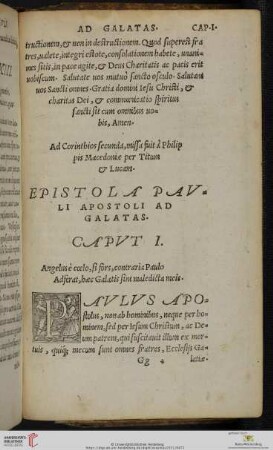 AD GALATAS. CAP. I.
tructionem, & non in destructionem. Quod superest fra
tres, valete, integri estote, consolationem habete, unani-
mes sitis, in pace agite, & Deus Charitatis ac pacis erit
vobiscum. Salutate vos mutuò sancto osculo. Salutant
vos Sancti omnes. Gratia domini Iesu Christi, &
charitas Dei, & communicatio spiritus
sancti sit cum omnibus vo-
bis, Amen.
Ad Corinthios secunda, missa fuit à Philip
pis Macedoniæ per Titum
& Lucam.
EPISTOLA PAV-
LI APOSTOLI AD
GALATAS.
CAPVT I.
Angelus è cœlo, si fors, contraria Paulo
Adferat, hæc Galatis sint maledicta meis.
PAVLVS APO-
stolus, non ab hominibus, neque per ho-
minem, sed per Iesum Christum, ac De-
um patrem, qui suscitavit illum ex mor-
tuis, quiq; mecum sunt omnes fratres, Ecclesijs Ga-
Gg 4 latiæ